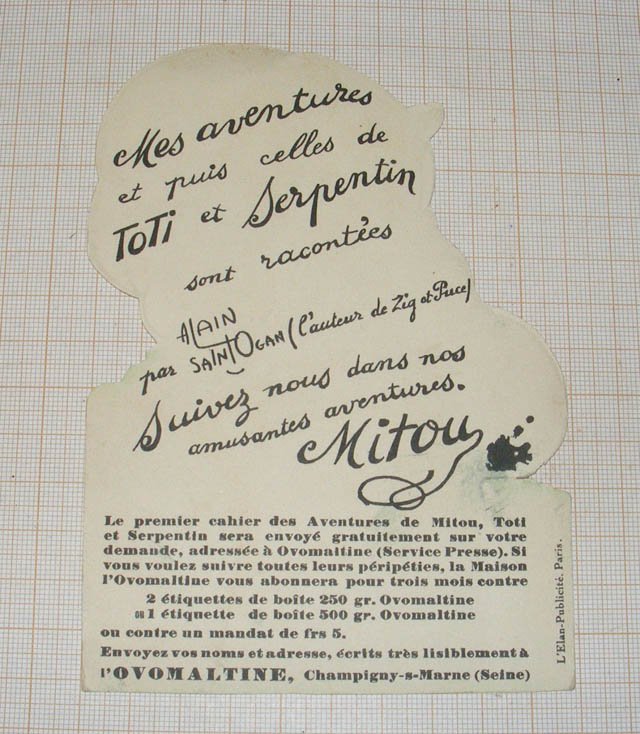 Mes aventures
et puis celles de
TOTI et Serpentin
sont racontées
par ALAIN SAINT-OGAN (l'auteur de Zig et Puce)
Suivez nous dans nos
amusantes aventures.
Mitou
Le premier cahier des Aventures de Mitou, Toti
et Serpentin sera envoyé gratuitement sur votre
demande, adressée à Ovomaltine (Service Presse). Si
vous voulez suivre toutes leurs péripéties, la Maison
l'Ovomaltine vous abonnera pour trois mois contre
2 étiquettes de boîte 250 gr. Ovomaltine
OU 1 étiquette de boîte 500 gr. Ovomaltine
ou contre un mandat de frs 5.
Envoyez vos noms et adresse, écrits très lisiblement à
l'OVOMALTINE, Champigny-s-Marne (Seine)
L'Elan-Publicité. Paris.